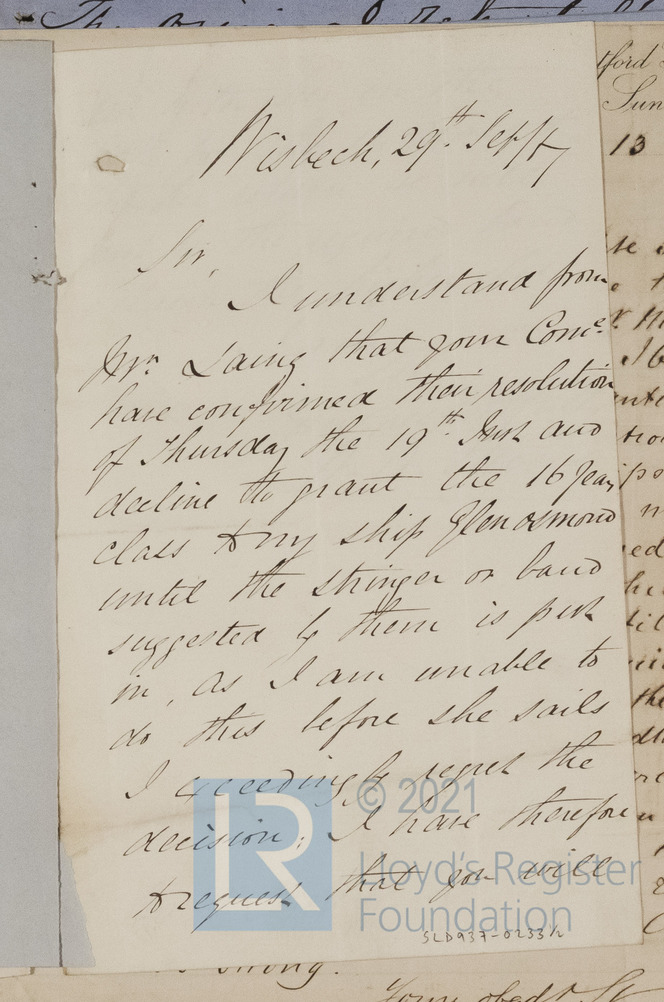 Wisbech, 29th Sept/
Sir,
I understand from
Mr. Laing that your Come.
have confirmed their resolution
of Thursday the 19th Inst and
decline to grant the 16 Year
class to my ship Glenosmond
until the stringer or band
suggested by them is put
in, as I am unable to
do this before she sails
I exceedingly regret the
decision; I have therefore
to request that you will
© 2021
LR
Lloyd's Register
Foundation
SLD937-0233/2
strong.
Your obedt St
tford
Sun
13